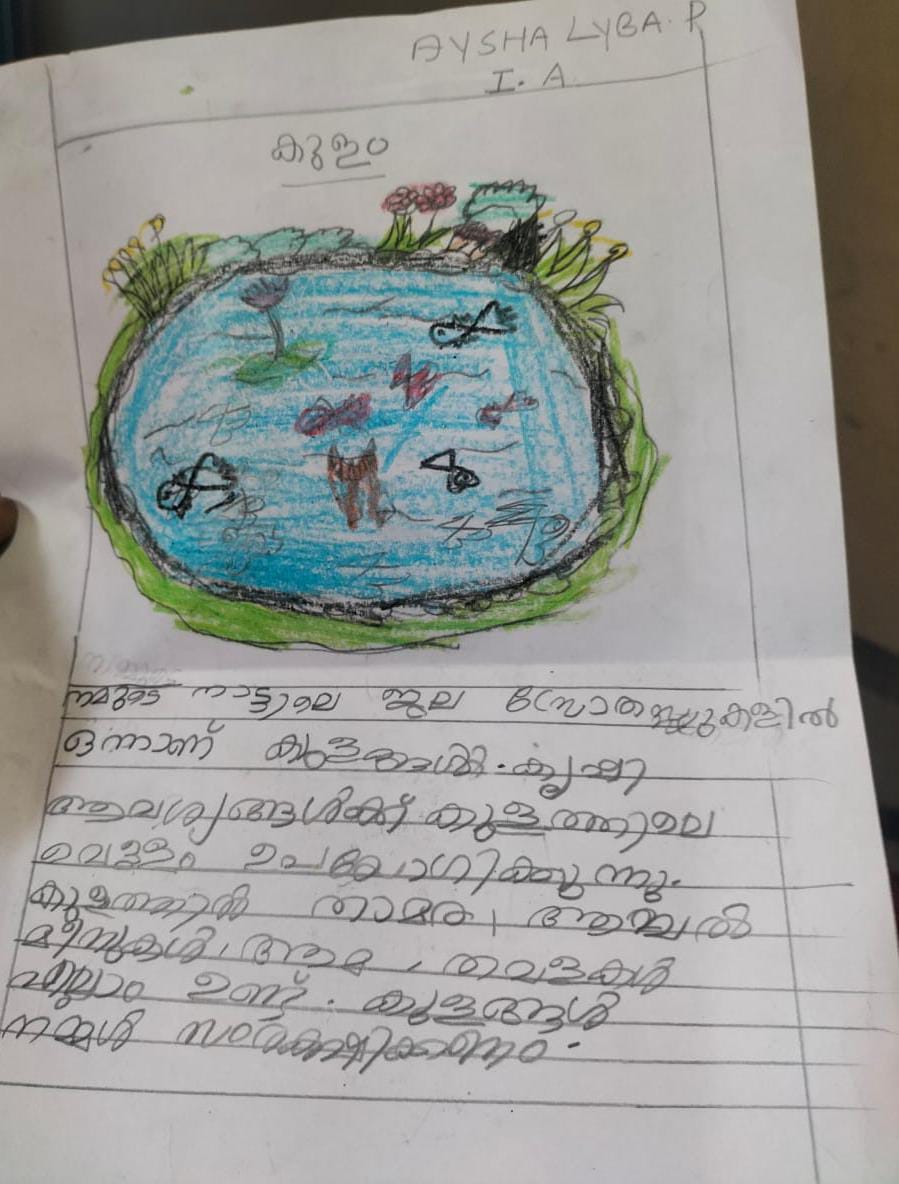 AYSHA LYBA. P
I. A
കുളം
നമ്മുടെ നാട്ടിലെ ജല സ്രോതസ്സുകളിൽ
ഒന്നാണ് കുളങ്ങൾ. കൃഷി
ആവശ്യങ്ങൾക്ക് കുളത്തിലെ
വെള്ളം ഉപയോഗിക്കുന്നു.
കുളത്തിൽ താമര, ആമ്പൽ
മീനുകൾ, ആമ, തവളകൾ
എല്ലാം ഉണ്ട്. കുളങ്ങൾ
നമ്മൾ സംരക്ഷിക്കണം.